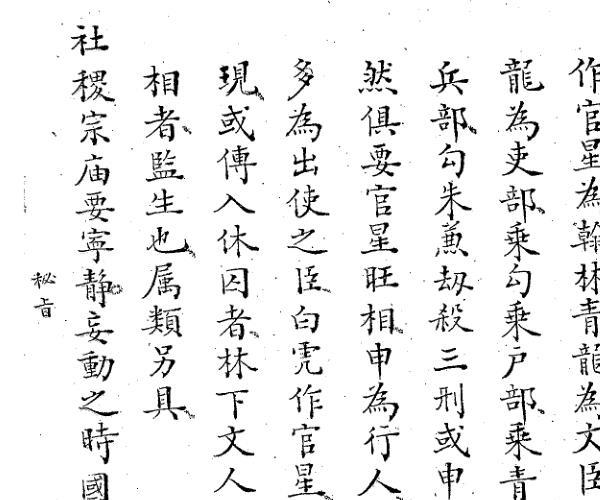 作官星為翰林青龍為文臣
龍為吏部乘勾乘戶部乘青
兵部勾朱蒹刼殺三刑或申
然俱要官星旺相申為行人
多為出使之臣白虎作官星
現或傳入休囚者林下文人
相者監生也属類另具
社稷宗庙要寧静妄動之時國
秘旨